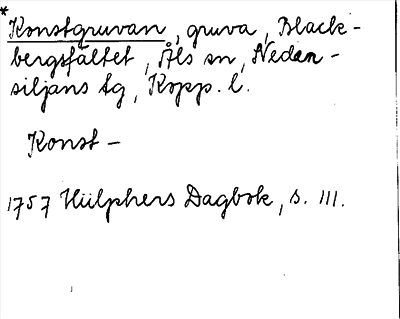 *
Konstgruvan, gruva, Black-
bergsfältet, Åls sn, Nedan-
siljans tg, Kopp. l.
Konst –
1757 Hülphers Dagbok, s. 111.